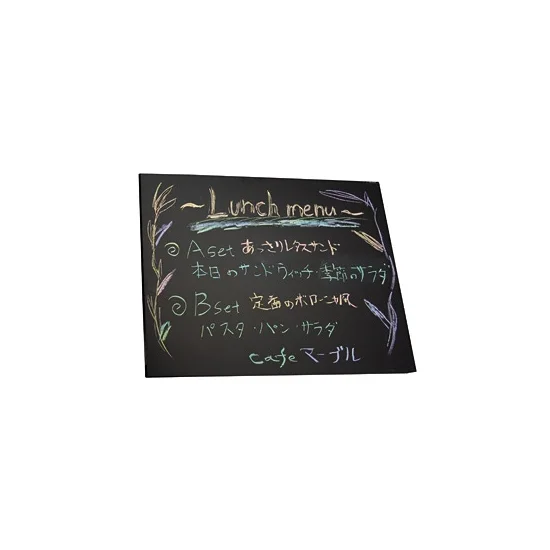 ~Lunch menu~
Aset あっさりレタスサンド
本日のサンドウィッチ・季節のサラダ
Bset 定番のボローニャ風
パスタ・パン・サラダ
cafe マーブル